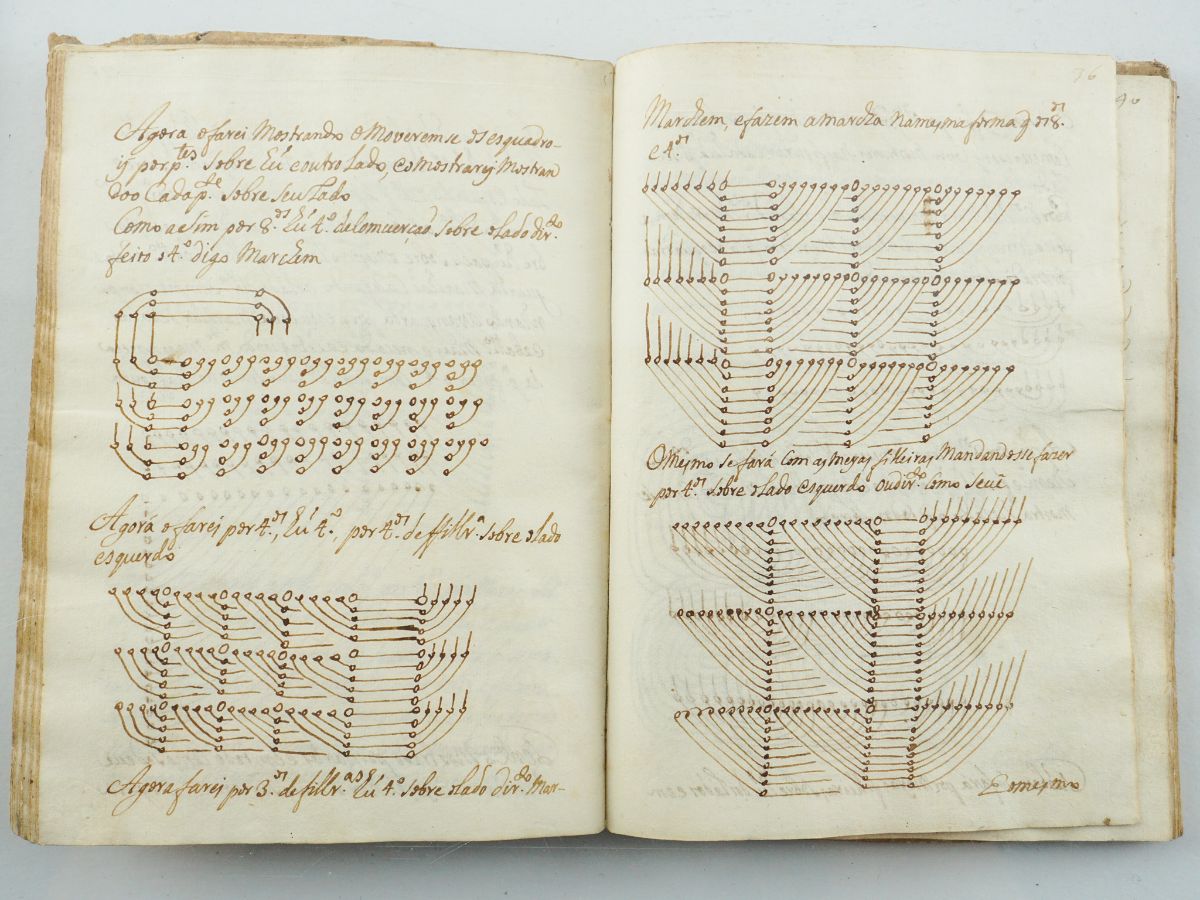 Agora o farei Mostrando o Moverem se os esquadro-
is por p.tes sobre hũ e outro Lado, e o Mostrarej Mostran
doo Cada p.te sobre seu Lado
Como asim por 8.os hũ 4.o de Comverçaõ sobre o lado dir.do
feito o 4.o digo Marchem
Agora o farej por 4.os, hũ 4.o, por 4.os de ffillr.a sobre o lado
esquerdo
Agora farej por 3.os de fillr.as hũ 4.o sobre o lado dir.do Mar-
36
Marchem, e fazem a marcha Na mesma forma q os 8.os
e 4.os
O Mesmo se fará Com as Meyas filleiras Mandandosse fazer
por 4.os sobre o lado esquerdo ou dir.do Como se ve
E o mesmo